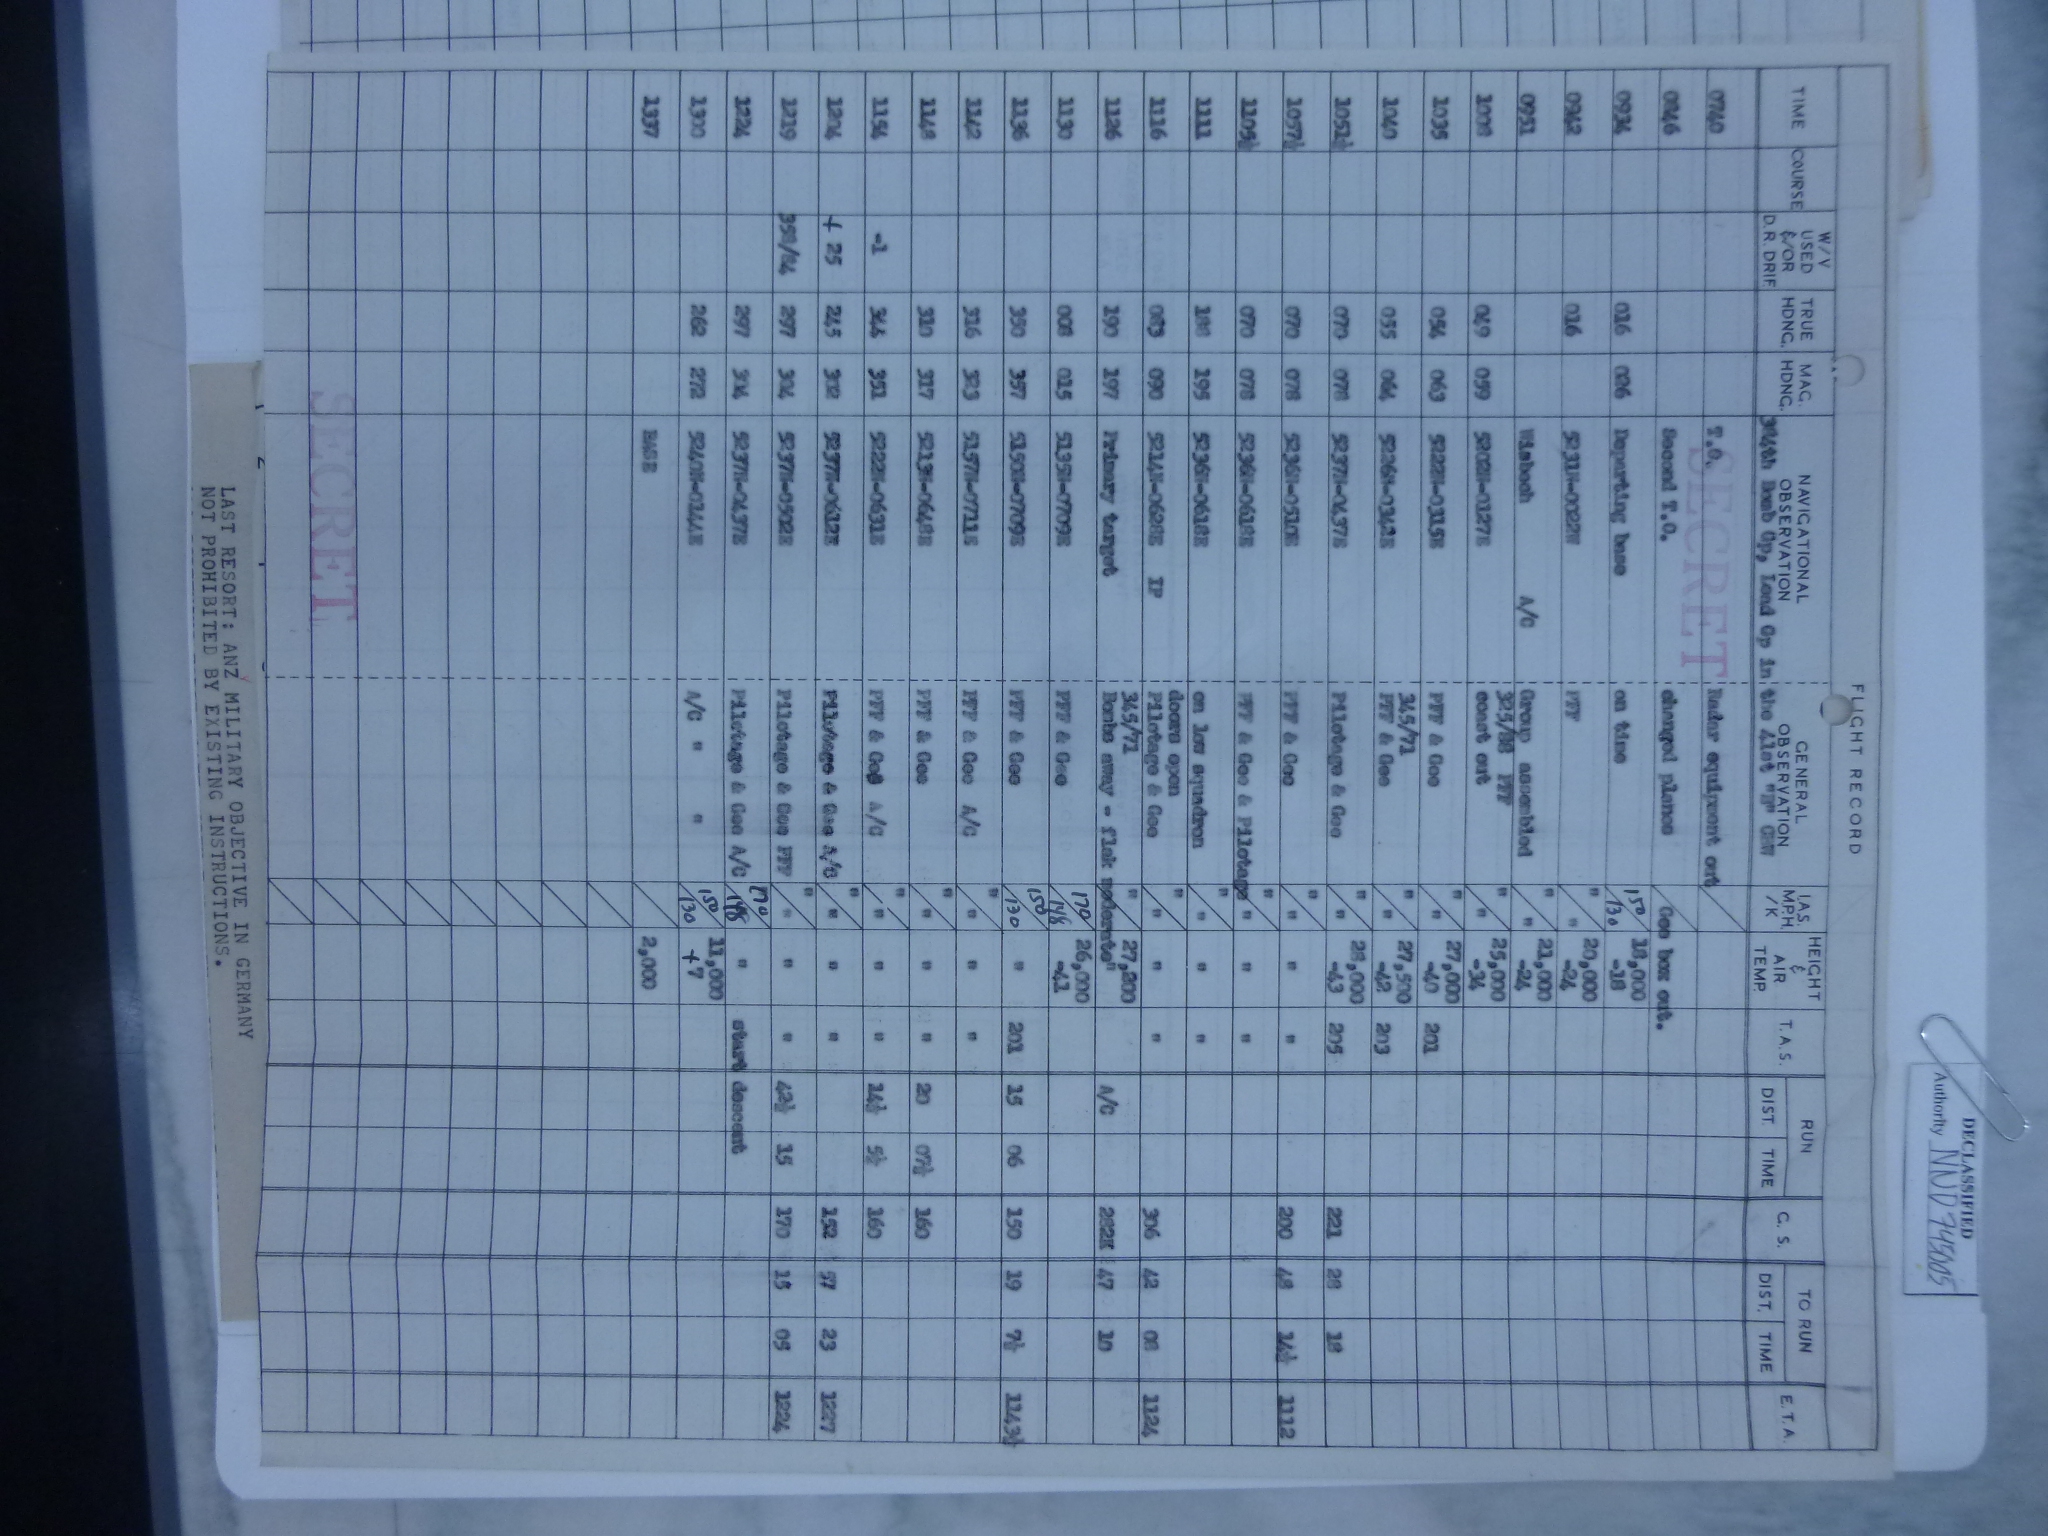 DECLASSIFIED
Authority NND 745005
FLIGHT RECORD
TIME COURSE W/V USED &/OR D.R. DRIF. TRUE HDNG. MAG. HDNG. NAVIGATIONAL OBSERVATION GENERAL OBSERVATION I.A.S. MPH /K HEIGHT & AIR TEMP. T.A.S. RUN DIST. TIME G. S. TO RUN DIST. TIME E.T.A.
Bomb Gp, Lead Gp in the 41st "B" CBW
SECRET
0740 T.O. Radar equipment out
0846 Second T.O. changed planes Gee box out.
0934 016 026 Departing base on time 150/130 18,000 -18
0942 016 5231N-0027W PFF " / " 20,000 -24
0951 Wisbech A/C Group assembled " / " 21,000 -24
325/88 PFF
1008 049 059 5202N-0127E coast out " / " 25,000 -34
1035 054 063 5222N-0315E PFF & Gee " / " 27,000 -40 201
345/71
1040 055 064 5226N-0342E PFF & Gee " / " 27,500 -42 203
1052½ 070 078 5237N-0437E Pilotage & Gee " / " 28,000 -43 205 221 28 18
1057½ 070 078 5236N-0510E PFF & Gee " / " " " 200 48 14½ 1112
1105½ 070 078 5236N-0618E PFF & Gee & Pilotage " / " " "
1111 188 195 5236N-0618E on low squadron " / " " "
doors open
1116 083 090 5214N-0628E IP Pilotage & Gee " / " " " 306 42 08 1124
345/71
1126 190 197 Primary target Bombs away - flak moderate" 27,800 A/C 282K 47 10
1130 008 015 5135N-0709E PFF & Gee 170/148 26,000 -41
1136 350 357 5150N-0709E PFF & Gee 150/130 " 201 15 06 150 19 7½ 1143½
1142 316 323 5157N-0711E PFF & Gee A/C " / " " "
1148 310 317 5213N-0648E PFF & Gee " / " " " 20 07½ 160
1154 -1 344 351 5222N-0631E PFF & Gee A/C " / " " " 14½ 5½ 160
1204 + 25 245 5237N-0612E Pilotage & Gee A/C " / " " " 152 57 23 1227
1219 358/84 297 304 5237N-0502E Pilotage & Gee PFF " / " " " 42½ 15 170 15 05 1224
1224 297 304 5237N-0437E Pilotage & Gee A/C 170/148 " start descent
1300 262 272 5240N-0144E A/C " " 150/130 11,000 +7
1337 BASE 2,000
SECRET
LAST RESORT: ANY MILITARY OBJECTIVE IN GERMANY
NOT PROHIBITED BY EXISTING INSTRUCTIONS.